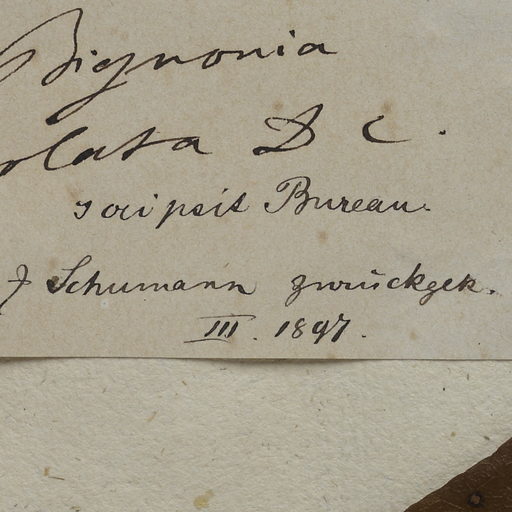 Bignonia
lata DC.
scripsit Bureau.
Schumann zurückgek.
III. 1897.